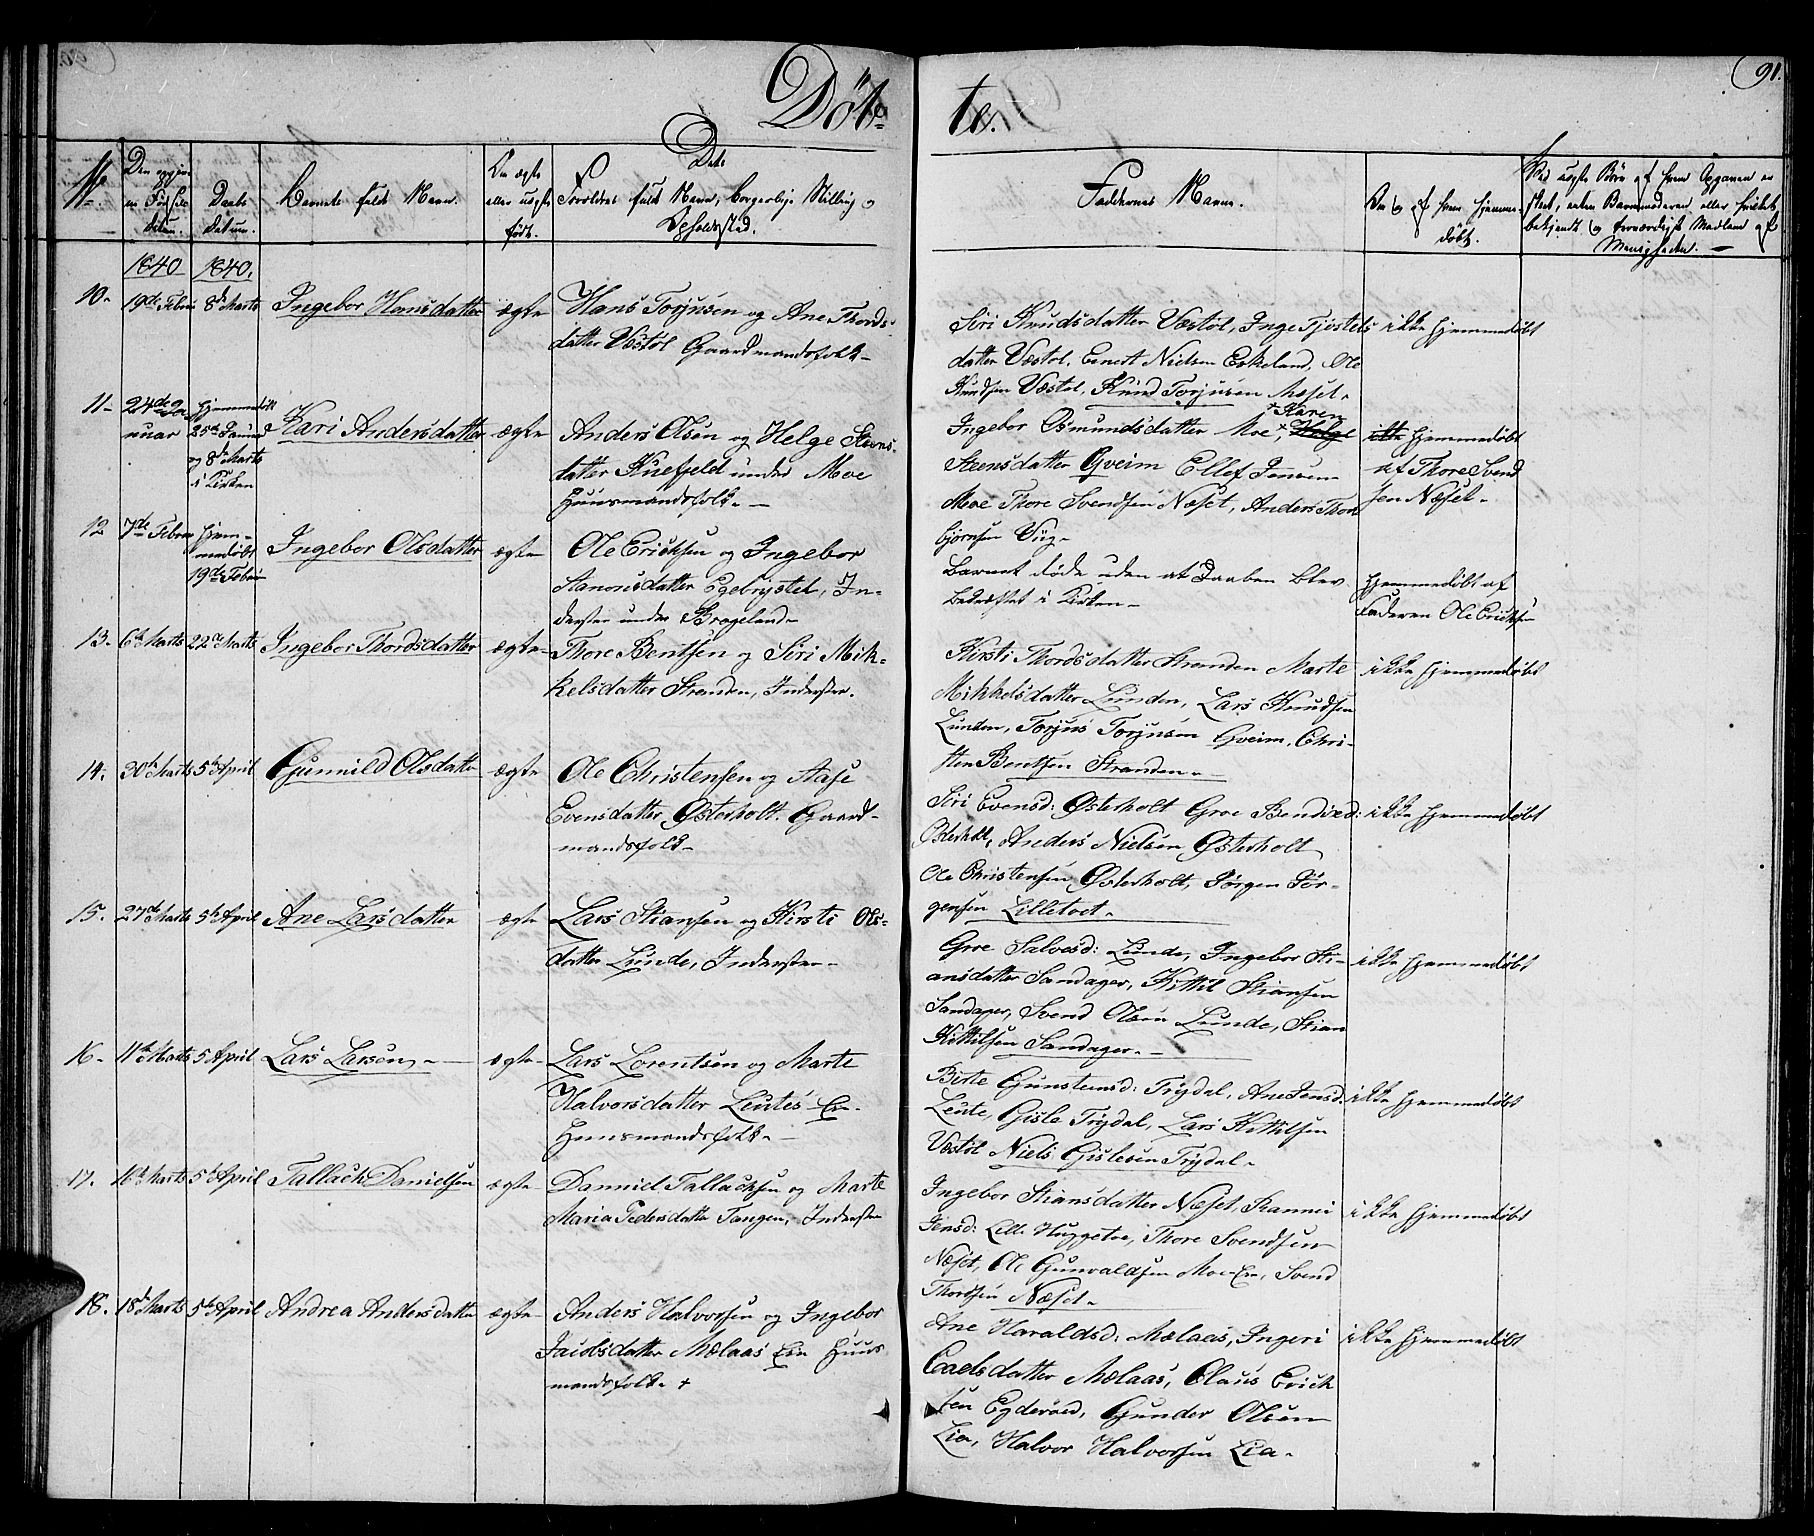 91.
Døb-
te.
No
Den opgivne Fødsels Datum.
Daabs Datum.
Barnets fulde Navn.
Om ægte eller uægte født.
Dets Forældres fulde Navn, borgerlige Stilling og Opholdssted.
Faddernes Navne.
Om og af hvem hjemme-
døbt.
1840
1840.
10.
19de Febru
8de Marts
Ingebor Hansdatter
ægte
Hans Torjusen og Ane Thords-
datter Væstøl Gaardmandsfolk-
Siri Knudsdatter Væstøl, Inge Tjostels
datter Væstøl, Ernert Nielsen Eskeland, Ole
Knudsen Væstøl, Knud Torjusen Mæsel.
ikke hjemmedøbt
11-
24de Ja-
nuar
hjemmedøbt
25de Januar
og 8de Marts
i Kirken
Kari Andersdatter
ægte
Anders Olsen og Helge Steens-
datter Knefjeld under Moe
Huusmandsfolk.-
× Karen
Ingebor Osmundsdatter Moe ×, Helge
Steensdatter Gveim Ellef Jensen
Moe Thore Svendsen Næset, Anders Thor
bjørnsen Viig-
ikke hjemmedøbt
af Thore Svend
sen Næset-
12
7de Febru
hjem-
medøbt
19de Febru
Ingebor Olsdatter
ægte
Ole Ericksen og Ingebor
Egebrystel, In-
derster under Brageland-
Barnet døde uden at Daaben blev
bekræftet i Kirken-
hjemmedøbt af
Faderen Ole Ericksen
13.
6te Marts
22de Marts
Ingebor Thordsdatter
ægte-
Thore Bentsen og Siri Mik-
kelsdatter Stranden, Inderster.
Kirsti Thordsdatter Stranden Marte
Mikkelsdatter Lunden, Lars Knudsen
Lunden, Torjus Torjusen Gveim, Chri-
sten Bentsen Stranden.-
ikke hjemmedøbt
14.
30te Marts
5te April
Gunnild Olsdatter
ægte
Ole Christensen og Aase
Evensdatter Østerholt. Gaard-
mandsfolk-
Siri Evensd: Østerholt Groe Bendixed:
Østerholt, Anders Nielsen Østerholt
Ole Christensen Østerholt, Jørgen Jør-
gensen Lilletvet-
ikke hjemmedøbt
15.
27de Marts
5te April
Ane Larsdatter
ægte
Lars Stiansen og Kirsti Ols-
datter Lunde, Inderster-
Groe Salvesd: Lunde, Ingebor Sti-
ansdatter Sandager, Kittil Stiansen
Sandager, Svend Olsen Lunde, Stian
Kittilsen Sandager.-
ikke hjemmedøbt
16-
11te Marts
5 April
Lars Larsen
ægte-
Lars Lorentsen og Marte
Halvorsdatter Leutes Eie.
Huusmandsfolk-
Birte Gunsteensd: Trydal, Ane Jensd:
Leute, Gisle Trydal, Lars Kittilsen
Væstøl Niels Gislesen Trydal-
ikke hjemmedøbt
17.
16de Marts
5te April
Tallack Danielsen
ægte-
Danniel Tallacksen og Marte
Maria Pedersdatter Tangen, Inderster
Ingebor Stiansdatter Næset, Ranni
Jensd: Lille Huggetoe, Thore Svendsen
Næset, Ole Gunvaldsen Moe-Eie, Svend
Thordsen Næset-
ikke hjemmedøbt
18.
18de Marts
5te April
Andrea Andersdatter
ægte-
Anders Halvorsen og Ingebor
Jacobsdatter Mælaas Eie Huus
mandsfolk- +
Ane Haraldsd: Mælaas, Ingeri
Carlsdatter Mælaas, Olaus Erick
sen Egderød, Gunder Olsen
Lia, Halvor Halvorsen Lia-
ikke hjemmedøbt